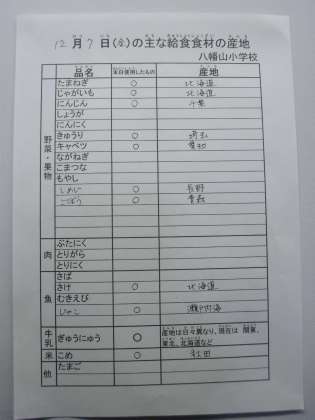 12月7日(金)の主な給食食材の産地
八幡山小学校
品名 本日使用したもの 産地
野菜・果物
たまねぎ ○ 北海道
じゃがいも ○ 北海道
にんじん ○ 千葉
しょうが
にんにく
きゅうり ○ 埼玉
キャベツ ○ 愛知
ながねぎ
こまつな
もやし
しめじ ○ 長野
ごぼう ○ 青森
肉
ぶたにく
とりがら
とりにく
魚
さば
さけ ○ 北海道
むきえび
じゃこ ○ 瀬戸内海
牛乳 ぎゅうにゅう ○ 産地は日々異なり、現在は 関東、
東北、北海道など
米 こめ ○ 秋田
他 たまご